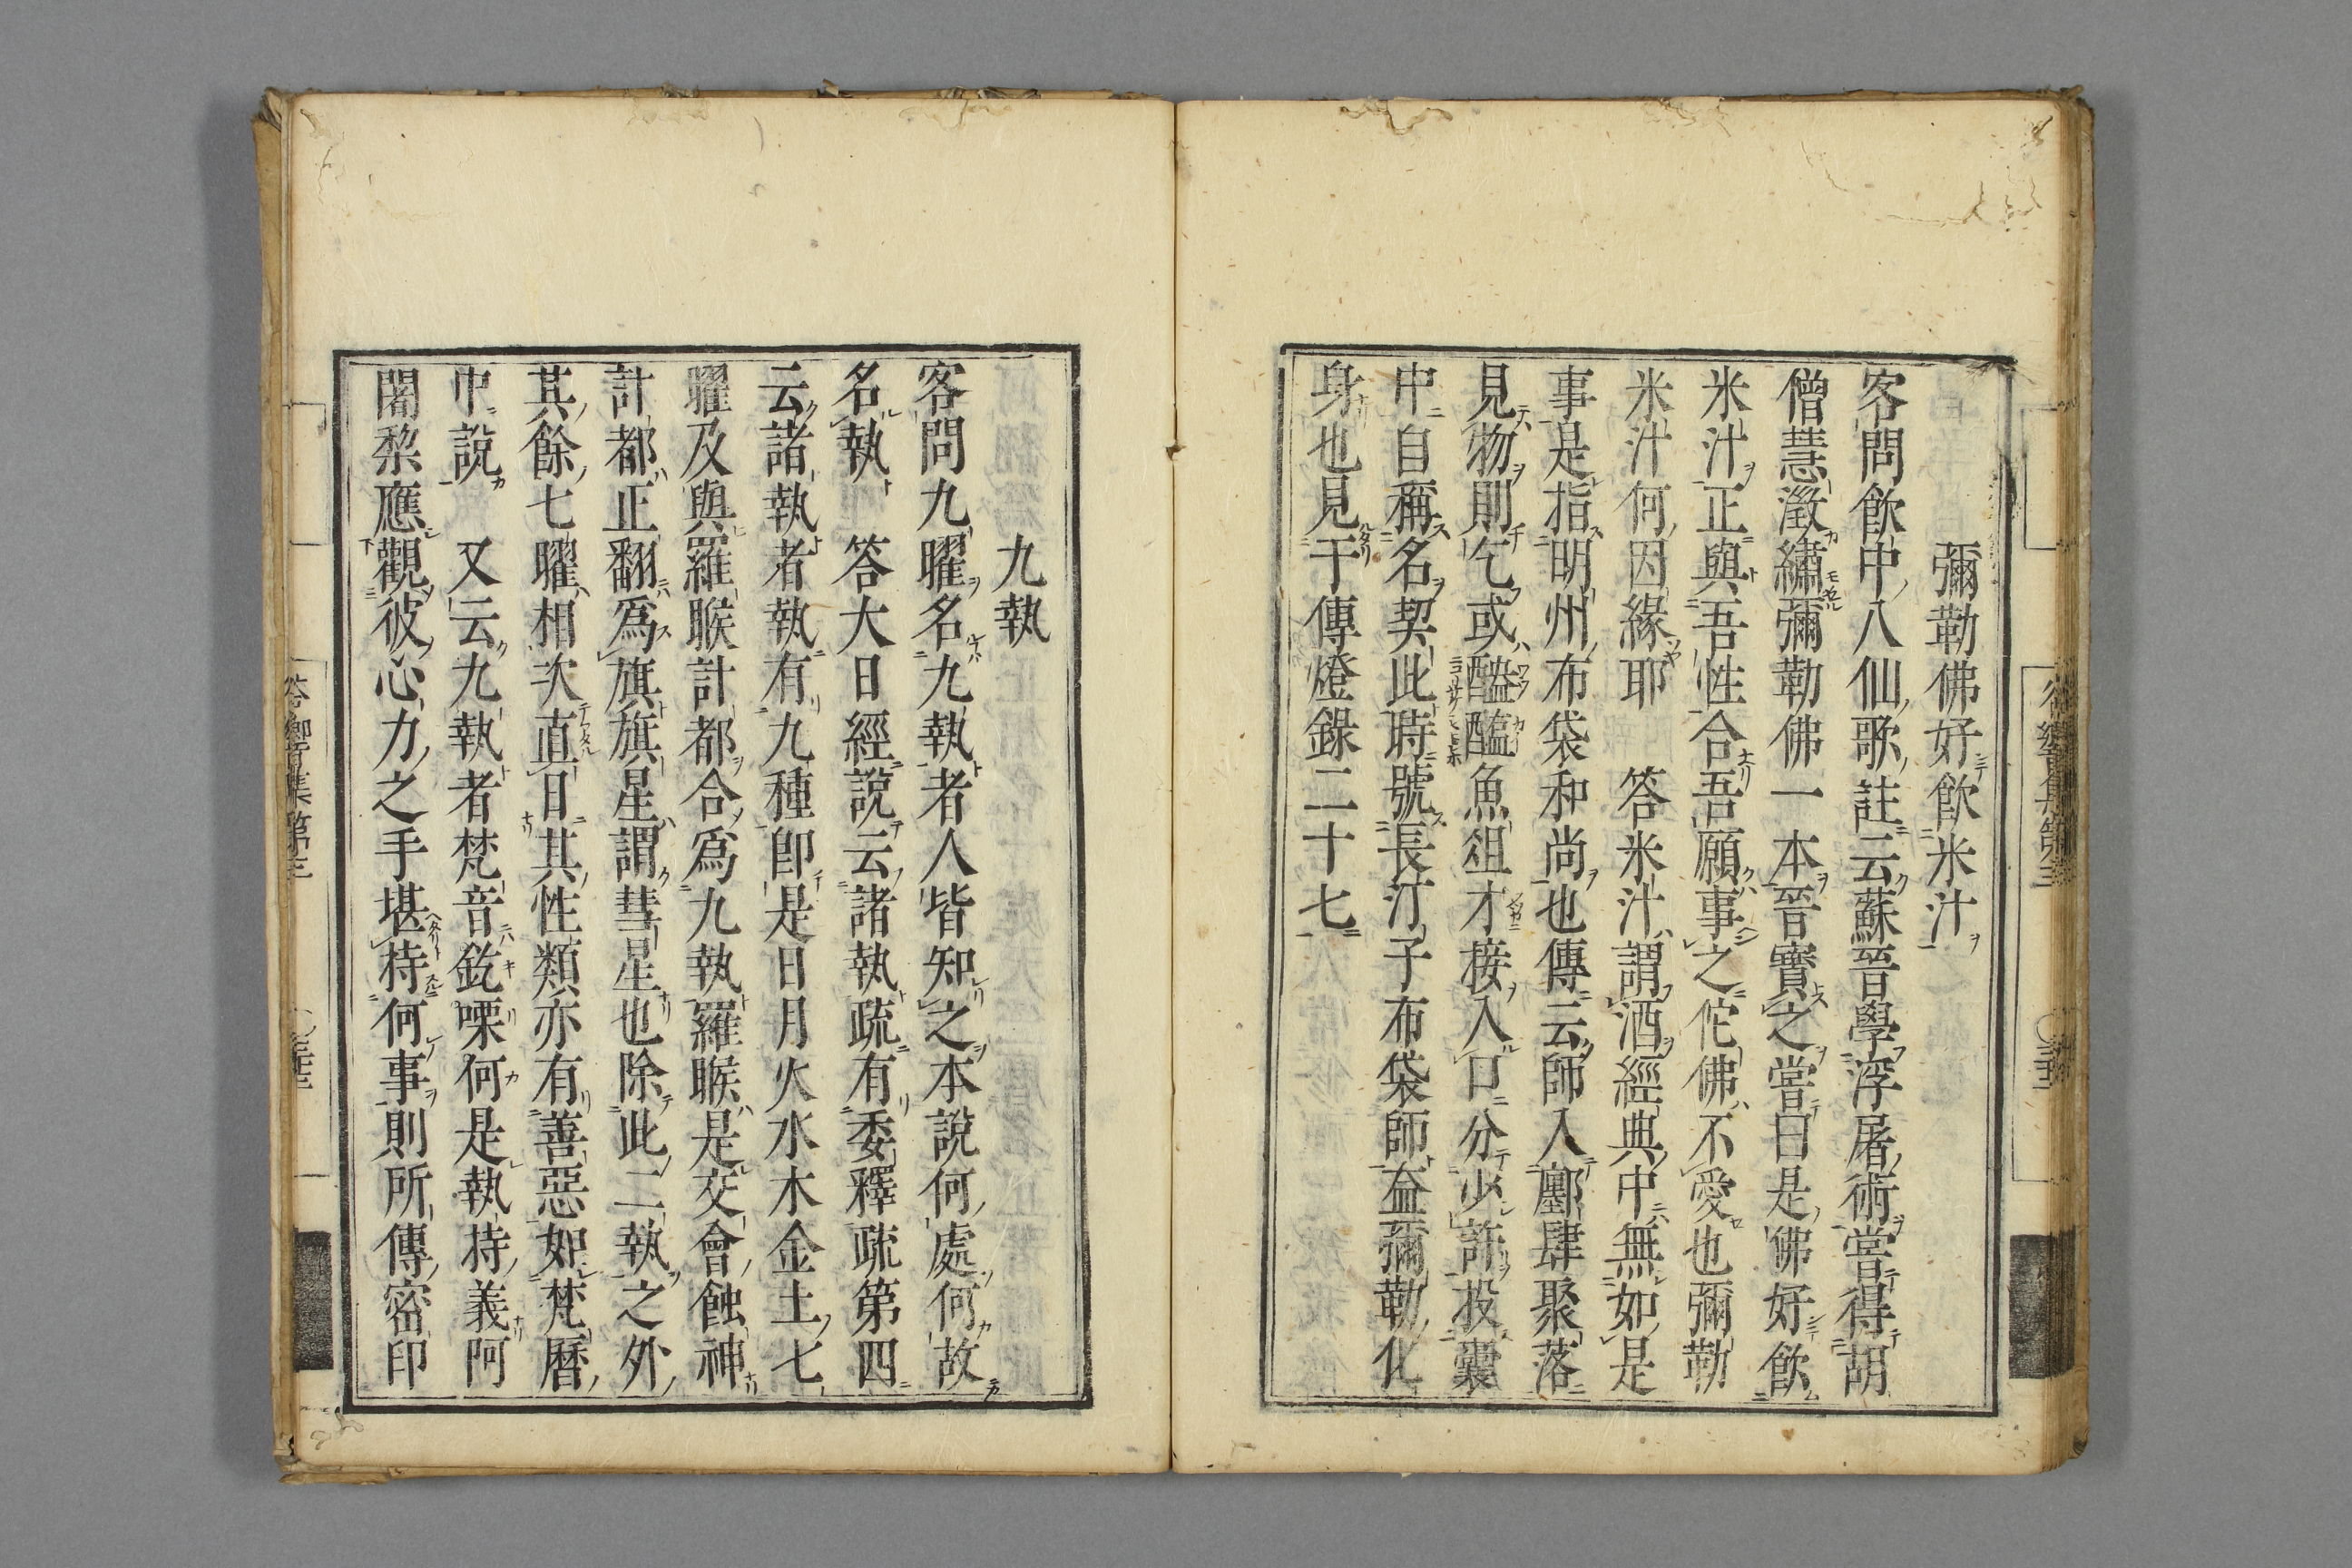 彌勒佛好飲米汁
客問飲中八仙歌註云蘇晉學浮屠術嘗得胡
僧慧澂繡彌勒佛一本晉寶之嘗曰是佛好飲
米汁正與吾性合吾願事之佗佛不愛也彌勒
米汁何因緣耶　答米汁謂酒經典中無如是
事是指明州布袋和尚也傳云師入鄽肆聚落
見物則乞或醯醢魚俎才接入口分少許投囊
中自稱名契此時號長汀子布袋師益彌勒化
身也見于傳燈錄二十七
九執
客問九曜名九執者人皆知之本說何處何故
名執　答大日經說云諸執疏有委釋疏第四
云諸執者執有九種卽是日月火水木金土七
曜及與羅睺計都合爲九執羅睺是交會蝕神
計都正翻爲旗旗星謂彗星也除此二執之外
其餘七曜相次直日其性類亦有善惡如梵曆
中說　又云九執者梵音鈗㗚何是執持義阿
闍棃應觀彼心力之手堪持何事則所傳密印
答響集第三